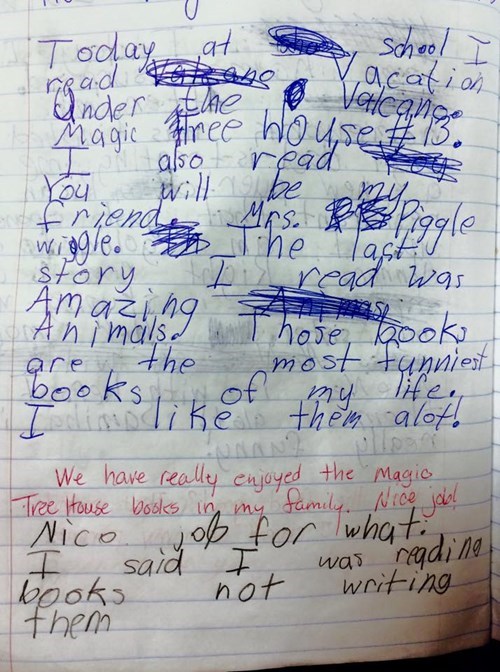 Today at school I
read Vacation
Under the Valcano.
Magic tree house #13.
I also read
You will be my
friend. Mrs. Piggle
wiggle. The last
story I read was
Amazing
Animals. Those books
are the most funniest
books of my life.
I like them alot!
We have really enjoyed the Magic
Tree House books in my family. Nice job!
Nice job for what.
I said I was reading
books not writing
them